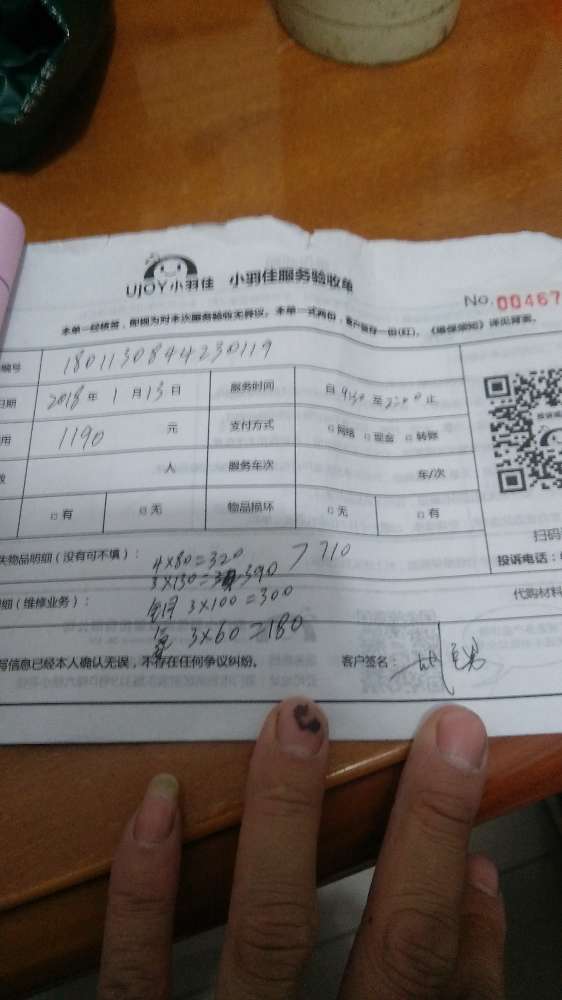 UJOY小羽佳 小羽佳服务验收单
No. 00467
本单一经核签，即视为对本次服务验收无异议。本单一式两份，客户保存一份(红)。《维保须知》详见背面。
编号 1801130844230119
日期 2018年 1月 13日 服务时间 自 9:30 至 22:00 止
用 1190 元 支付方式 □ 网络 □ 现金 □ 转账
数 人 服务车次 车/次
□ 有 □ 无 物品损坏 □ 无 □ 有
扫码
失物品明细（没有可不填）： 4×80=320 710
投诉电话：
3×130=390
细（维修业务）： 3×100=300 代购材料
3×60=180
写信息已经本人确认无误，不存在任何争议纠纷。 客户签名：